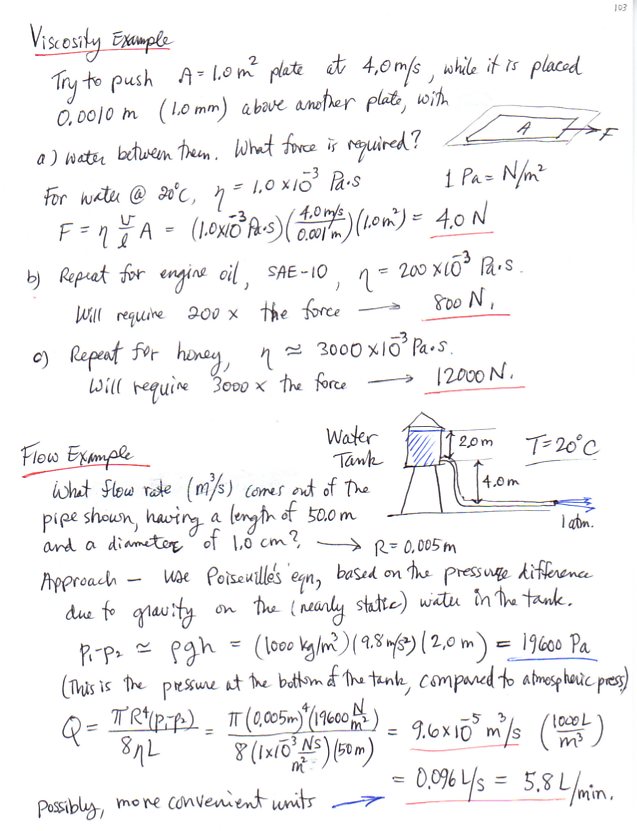 103
Viscosity Example
Try to push A = 1.0 m² plate at 4.0 m/s, while it is placed
0.0010 m (1.0 mm) above another plate, with
A F
a) water between them. What force is required?
For water @ 20°C, η = 1.0 x 10⁻³ Pa·s 1 Pa = N/m²
F = η v/l A = (1.0x10⁻³ Pa·s)(4.0 m/s / 0.001 m)(1.0 m²) = 4.0 N
b) Repeat for engine oil, SAE-10, η = 200 x 10⁻³ Pa·s.
Will require 200 x the force → 800 N.
c) Repeat for honey, η ≈ 3000 x 10⁻³ Pa·s.
Will require 3000 x the force → 12000 N.
Flow Example
Water Tank
2.0 m
T = 20°C
4.0 m
1 atm.
What flow rate (m³/s) comes out of the
pipe shown, having a length of 50.0 m
and a diameter of 1.0 cm? → R = 0.005 m
Approach — Use Poiseuille's eqn, based on the pressure difference
due to gravity on the (nearly static) water in the tank.
P₁-P₂ ≃ ρgh = (1000 kg/m³)(9.8 m/s²)(2.0 m) = 19600 Pa
(This is the pressure at the bottom of the tank, compared to atmospheric press)
Q = πR⁴(P₁-P₂) / 8ηL = π(0.005m)⁴(19600 N/m²) / 8(1x10⁻³ Ns/m²)(50 m) = 9.6x10⁻⁵ m³/s (1000L / m³)
= 0.096 L/s = 5.8 L/min.
Possibly, more convenient units →